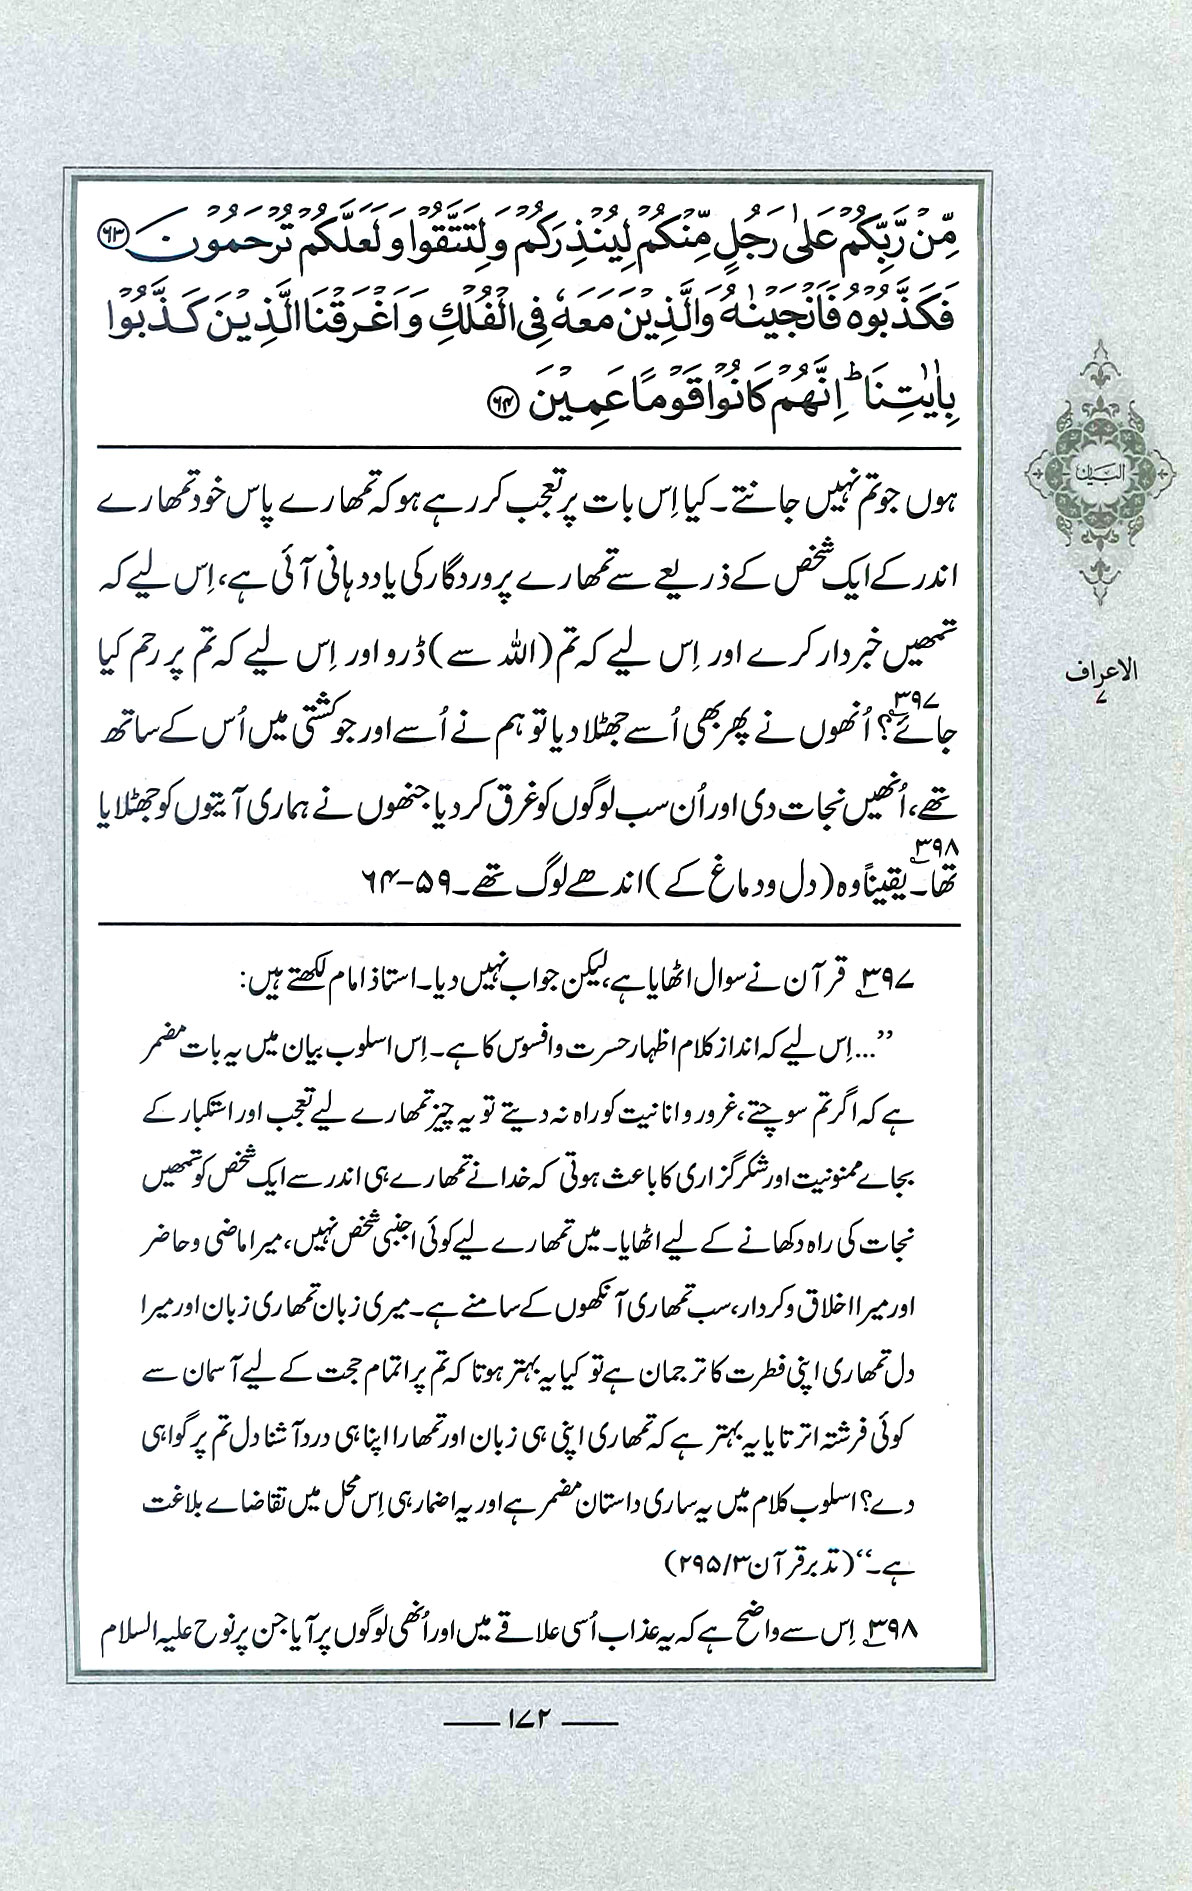 مِّنْ رَّبِّكُمْ عَلٰى رَجُلٍ مِّنْكُمْ لِيُنْذِرَكُمْ وَلِتَتَّقُوْا وَلَعَلَّكُمْ تُرْحَمُوْنَ ﴿۶۳﴾
فَكَذَّبُوْهُ فَاَنْجَيْنٰهُ وَالَّذِيْنَ مَعَهٗ فِى الْفُلْكِ وَاَغْرَقْنَا الَّذِيْنَ كَذَّبُوْا
بِاٰيٰتِنَا ؕ اِنَّهُمْ كَانُوْا قَوْمًا عَمِيْنَ ﴿۶۴﴾
ہوں جو تم نہیں جانتے۔ کیا اِس بات پر تعجب کر رہے ہو کہ تمھارے پاس خود تمھارے
اندر کے ایک شخص کے ذریعے سے تمھارے پروردگار کی یاددہانی آئی ہے، اِس لیے کہ
تمھیں خبردار کرے اور اِس لیے کہ تم (اللہ سے) ڈرو اور اِس لیے کہ تم پر رحم کیا
جائے؟ ۳۹۷ اُنھوں نے پھر بھی اُسے جھٹلا دیا تو ہم نے اُسے اور جو کشتی میں اُس کے ساتھ
تھے، اُنھیں نجات دی اور اُن سب لوگوں کو غرق کر دیا جنھوں نے ہماری آیتوں کو جھٹلایا
تھا۔ ۳۹۸ یقیناً وہ (دل و دماغ کے) اندھے لوگ تھے۔ ۵۹-۶۴
۳۹۷ قرآن نے سوال اٹھایا ہے، لیکن جواب نہیں دیا۔ استاذ امام لکھتے ہیں:
’’...اِس لیے کہ انداز کلام اظہار حسرت و افسوس کا ہے۔ اِس اسلوب بیان میں یہ بات مضمر
ہے کہ اگر تم سوچتے، غرور و انانیت کو راہ نہ دیتے تو یہ چیز تمھارے لیے تعجب اور استکبار کے
بجاے ممنونیت اور شکرگزاری کا باعث ہوتی کہ خدا نے تمھارے ہی اندر سے ایک شخص کو تمھیں
نجات کی راہ دکھانے کے لیے اٹھایا۔ میں تمھارے لیے کوئی اجنبی شخص نہیں، میرا ماضی و حاضر
اور میرا اخلاق و کردار، سب تمھاری آنکھوں کے سامنے ہے۔ میری زبان تمھاری زبان اور میرا
دل تمھاری اپنی فطرت کا ترجمان ہے تو کیا یہ بہتر ہوتا کہ تم پر اتمام حجت کے لیے آسمان سے
کوئی فرشتہ اترتا یا یہ بہتر ہے کہ تمھاری اپنی ہی زبان اور تمھارا اپنا ہی درد آشنا دل تم پر گواہی
دے؟ اسلوب کلام میں یہ ساری داستان مضمر ہے اور یہ اضمار ہی اِس محل میں تقاضاے بلاغت
ہے۔‘‘ (تدبر قرآن ۳/ ۲۹۵)
۳۹۸ اِس سے واضح ہے کہ یہ عذاب اُسی علاقے میں اور اُنھی لوگوں پر آیا جن پر نوح علیہ السلام
۱۷۲
البیان
الاعراف
۷